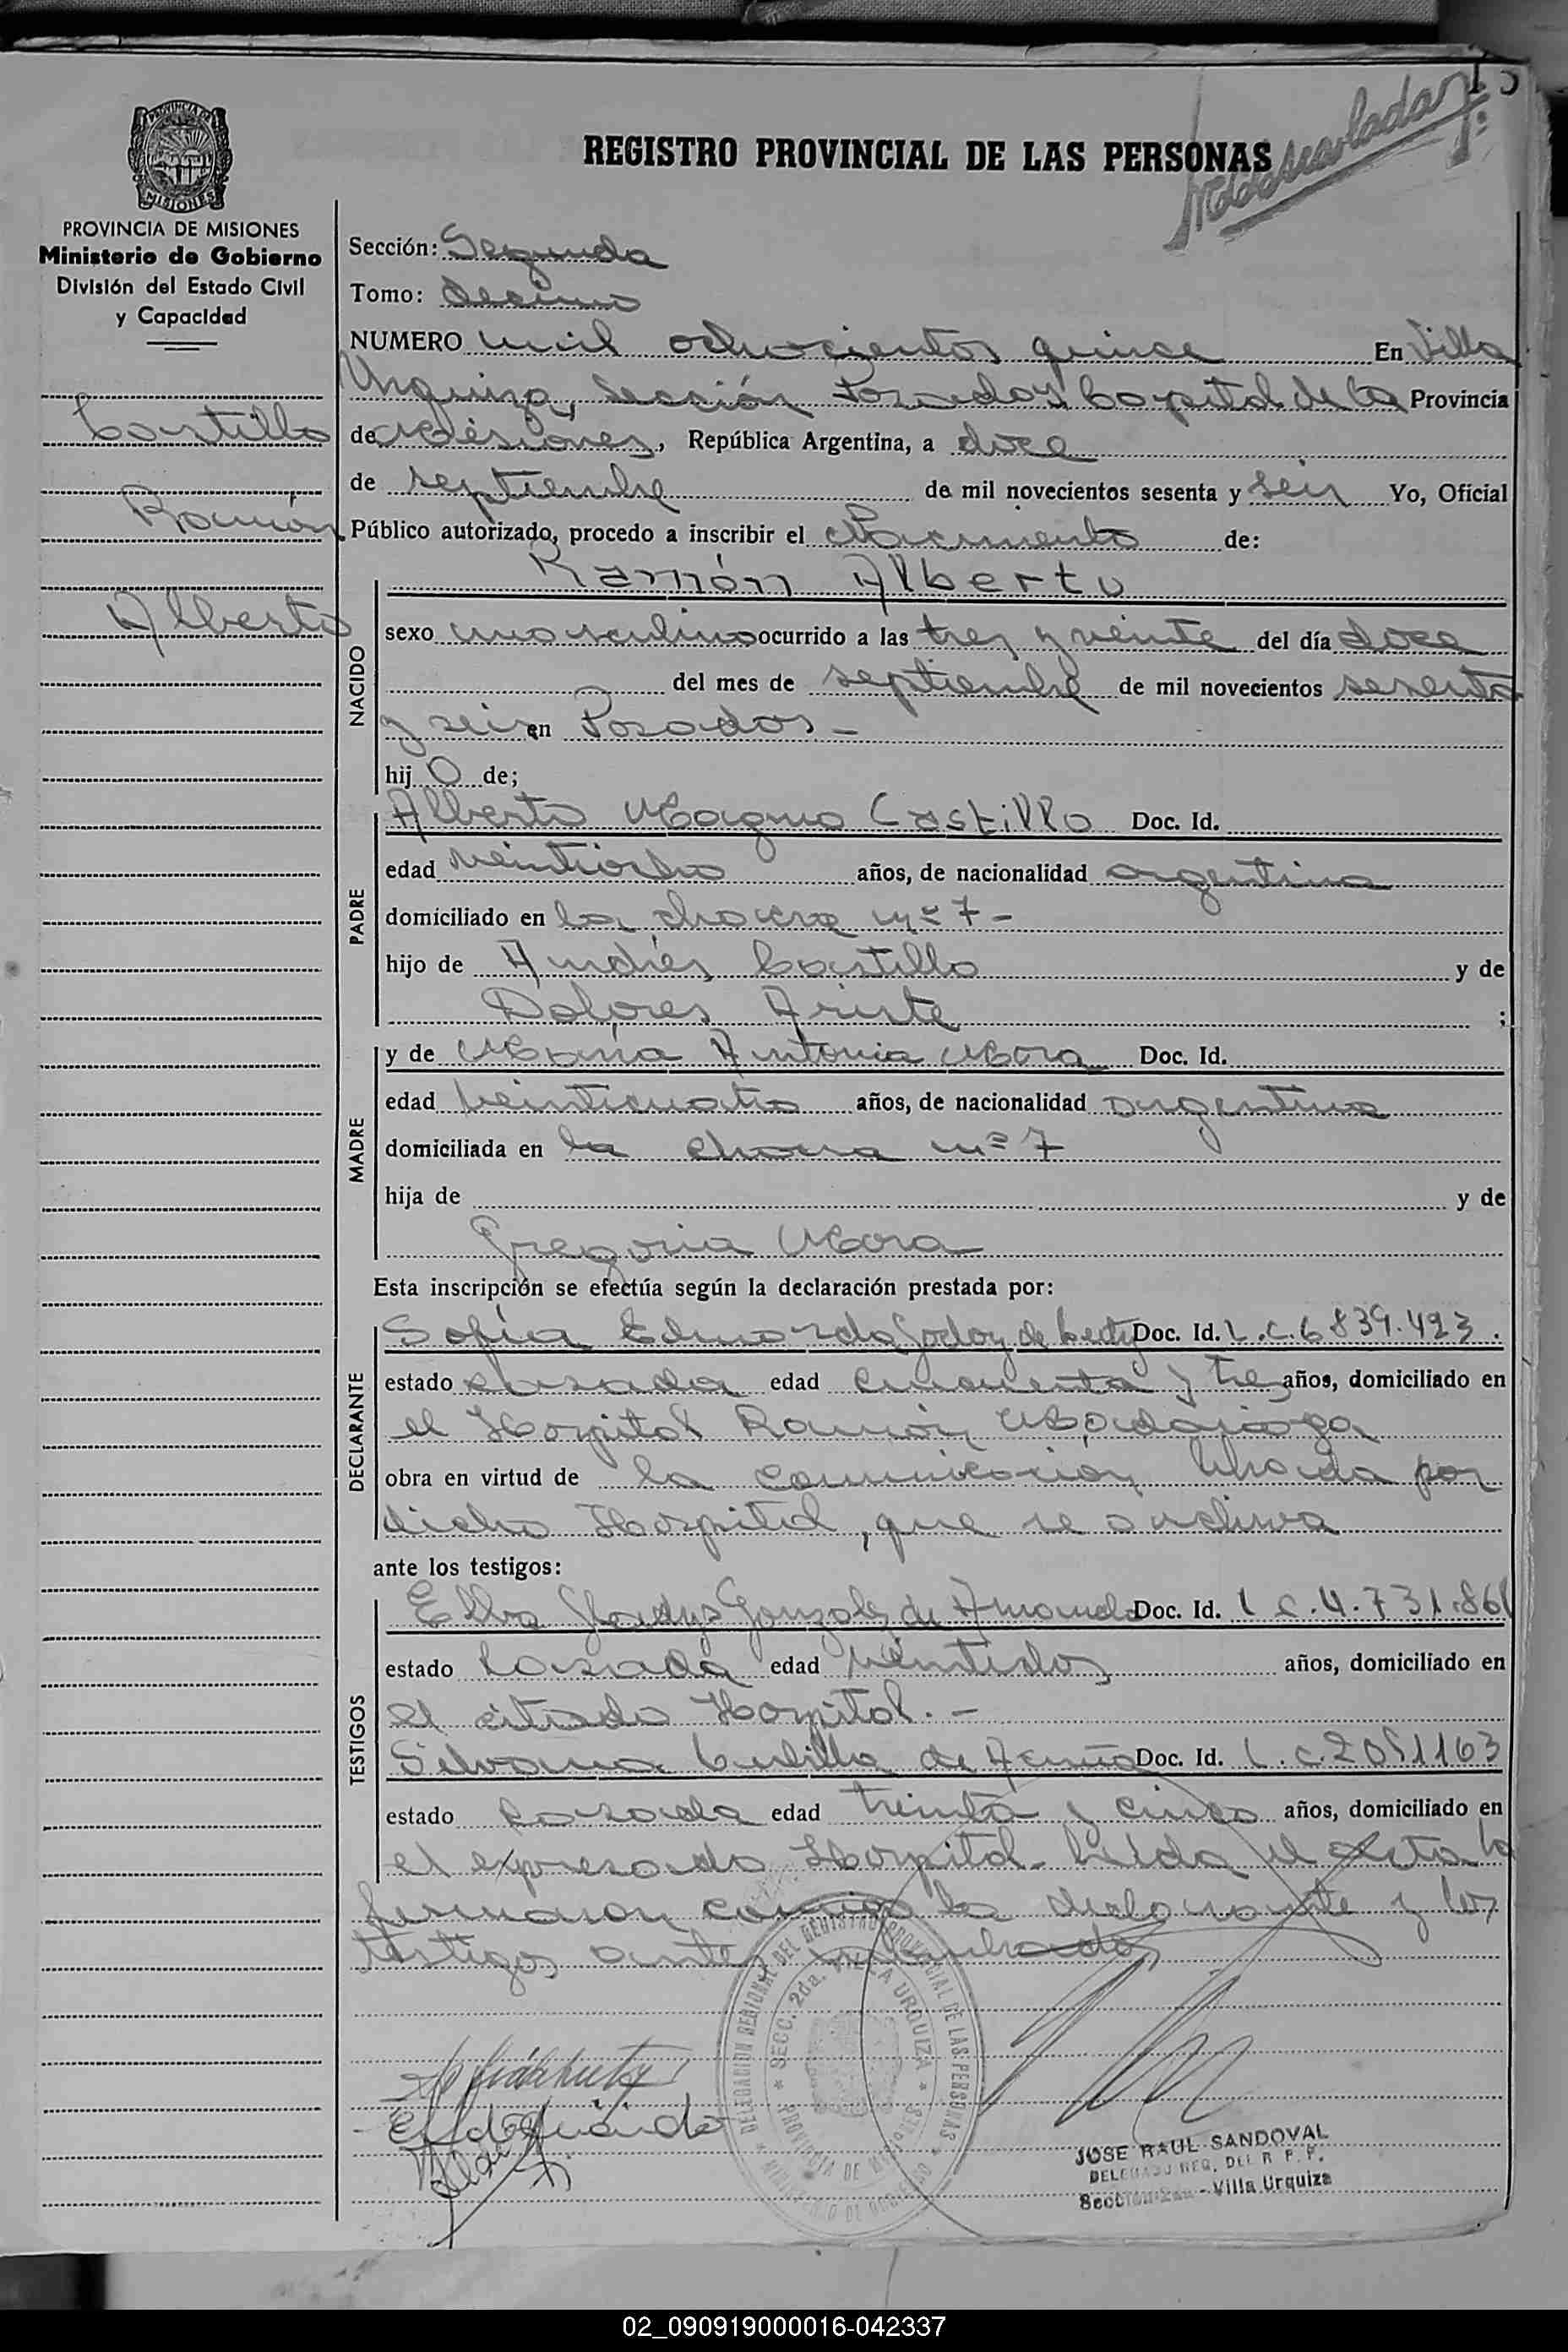 REGISTRO PROVINCIAL DE LAS PERSONAS
PROVINCIA DE MISIONES
MISIONES
PROVINCIA DE MISIONES
Ministerio de Gobierno
División del Estado Civil
y Capacidad
Castillo
Ramón
Alberto
Sección: Segunda
Tomo: decimo
NUMERO mil ochocientos quince En Villa
Urquiza, Sección Posadas Capital de la Provincia
de Misiones, República Argentina, a doce
de septiembre de mil novecientos sesenta y seis Yo, Oficial
Público autorizado, procedo a inscribir el Nacimiento de:
NACIDO
Ramón Alberto
sexo masculino ocurrido a las tres y veinte del día doce
del mes de septiembre de mil novecientos sesenta
y seis en Posadas -
hij o de;
PADRE
Alberto Magno Castillo Doc. Id.
edad veintiocho años, de nacionalidad argentina
domiciliado en la chacra nº 7 -
hijo de Andrés Castillo y de
Dolores ;
MADRE
y de María Antonia Mora Doc. Id.
edad veinticuatro años, de nacionalidad argentina
domiciliada en la chacra nº 7
hija de y de
Gregoria Mora
Esta inscripción se efectúa según la declaración prestada por:
DECLARANTE
Sofía Godoy de Doc. Id. L.C. 6 839.423.
estado casada edad cincuenta y tres años, domiciliado en
el Hospital Ramón Madariaga
obra en virtud de la comunicación librada por
dicho Hospital, que se archiva
ante los testigos:
TESTIGOS
Elba Gladys Gonzalez de Doc. Id. L.C. 4.731.861
estado Casada edad veintidos años, domiciliado en
el citado Hospital. -
de Acuña Doc. Id. L.C. 2051163
estado casada edad treinta y cinco años, domiciliado en
el expresado Hospital. Leida el acta la
firmaron conmigo la declarante y los
testigos ante
DELEGACION REGIONAL DEL REGISTRO PROVINCIAL DE LAS PERSONAS
SECC. 2da. VILLA URQUIZA
PROVINCIA DE
MINISTERIO DE GOBIERNO
JOSE RAUL SANDOVAL
DELEGADO REG. DEL R. P. P.
Sección 2da. - Villa Urquiza
02_090919000016-042337